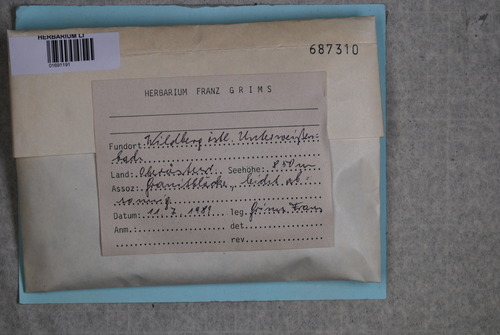 HERBARIUM LI
687310
HERBARIUM FRANZ GRIMS
Fundort: Wildberg östl. Unterweißen-
bach
Land: Oberösterr. Seehöhe: 850 m
Assoz: Granitblöcke, leicht ab-
sonnig
Datum: 11.7.1981 leg. Grims Franz
Anm.: det
rev